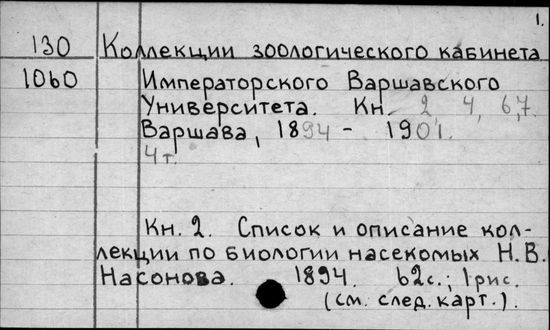 1.
130 Коллекции зоологического кабинета
1060 Императорского Варшавского
Университета. Кн. 2 4, 6,7.
Варшава, 1894 - 1901.
4 т.
Кн. 2. Список и описание кол-
лекции по биологии насекомых Н.В.
Насонова. 1894. 62с.; 1 рис.
(см. след. карт.).